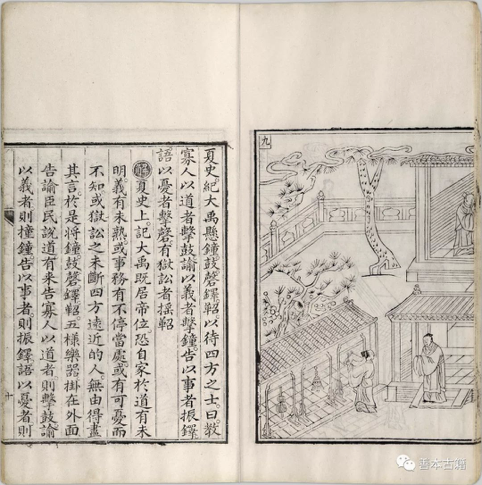 九
夏史紀大禹懸鐘鼓磬鐸鞀以待四方之士曰教
寡人以道者擊鼓諭以義者擊鐘告以事者振鐸
語以憂者擊磬有獄訟者搖鞀
解夏史上記大禹既居帝位恐自家於道有未
明義有未熟或事務有不停當處或有可憂而
不知或獄訟之未斷四方遠近的人無由得盡
其言於是將鐘鼓磬鐸鞀五樣樂器掛在外面
告諭臣民說道有來告寡人以道者則擊鼓諭
以義者則撞鐘告以事者則振鐸語以憂者則
十
善本古籍